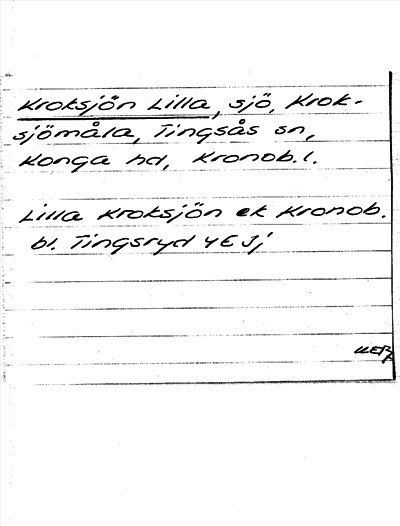 Kroksjön Lilla, sjö, Krok-
sjömåla, Tingsås sn,
Konga hd, Kronob.l.
Lilla Kroksjön ek Kronob.
bl. Tingsryd 4E3j